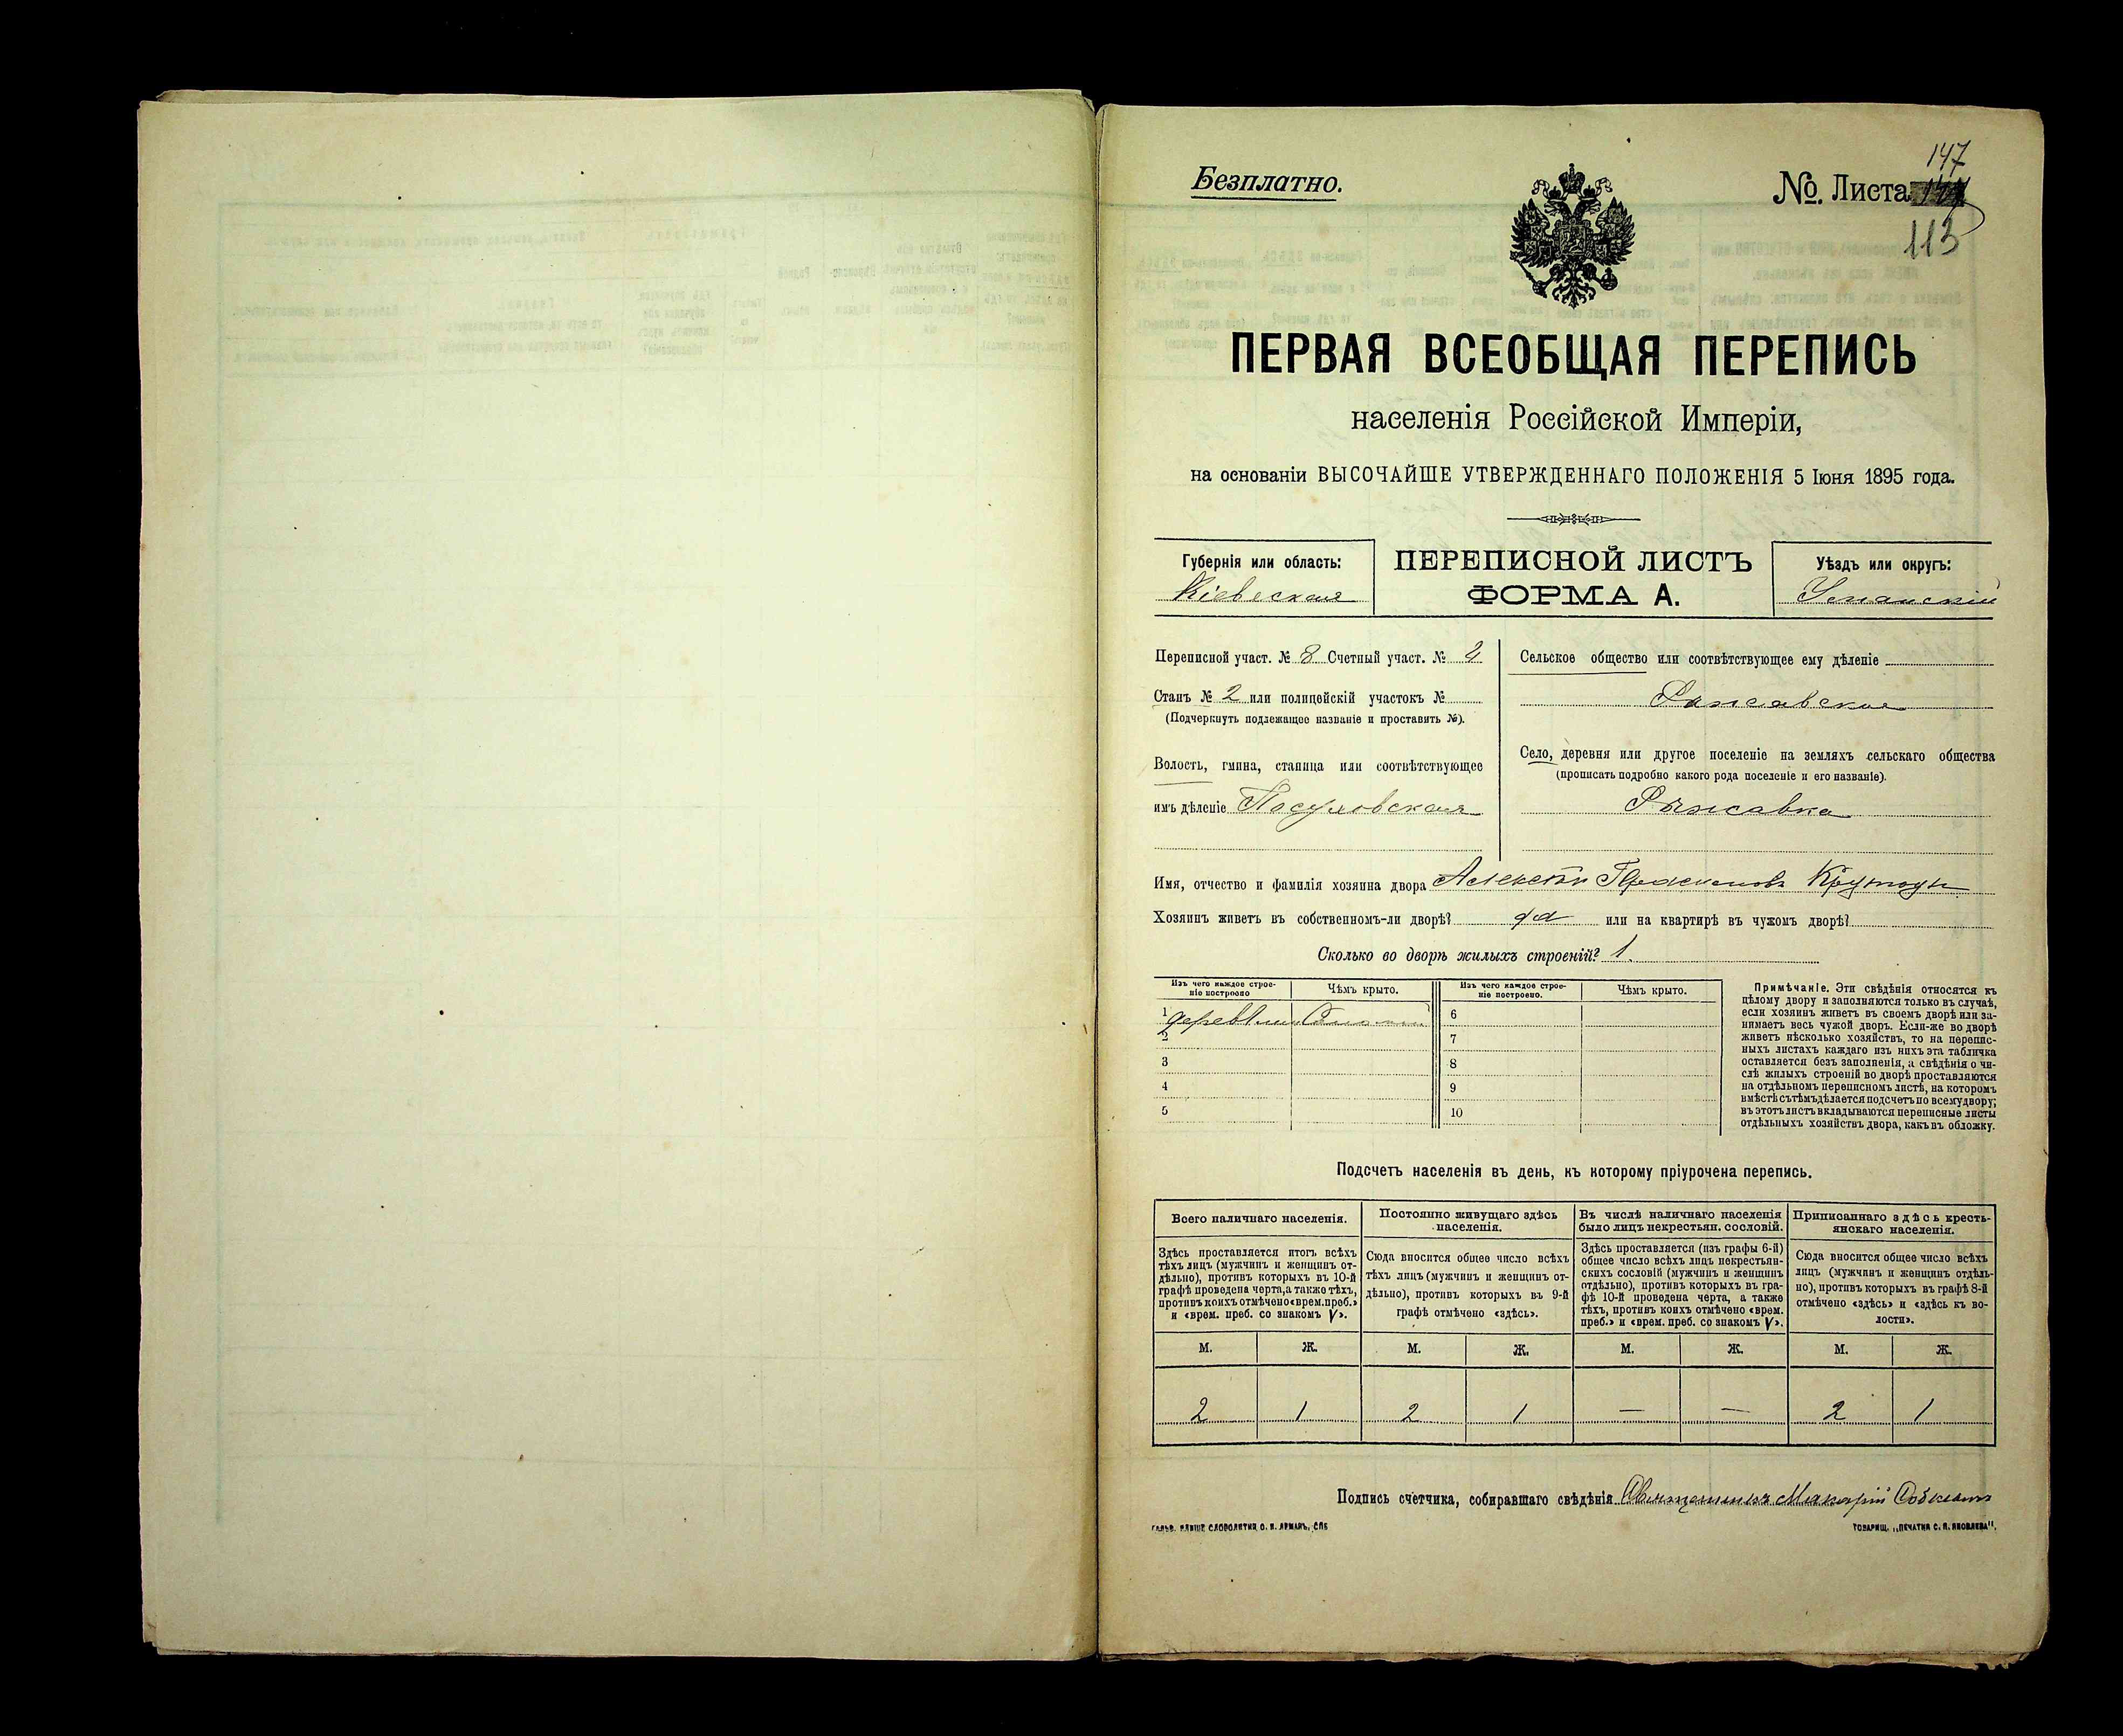 Безплатно.
№. Листа
147
113
ПЕРВАЯ ВСЕОБЩАЯ ПЕРЕПИСЬ
населенія Россійской Имперіи,
на основаніи ВЫСОЧАЙШЕ УТВЕРЖДЕННАГО ПОЛОЖЕНІЯ 5 Іюня 1895 года.
Губернія или область:
Кіевская
ПЕРЕПИСНОЙ ЛИСТЪ
ФОРМА А.
Уѣздъ или округъ:
Уманскій
Переписной участ. № 8 Счетный участ. № 2
Станъ № 2 или полицейскій участокъ №
(Подчеркнуть подлежащее названіе и проставить №).
Волость, гмина, станица или соотвѣтствующее
имъ дѣленіе Посуховская
Сельское общество или соотвѣтствующее ему дѣленіе
Ряжавское
Село, деревня или другое поселеніе на земляхъ сельскаго общества
(прописать подробно какого рода поселеніе и его названіе).
Ряжавка
Имя, отчество и фамилія хозяина двора Алексѣй Герасимовъ
Хозяинъ живетъ въ собственномъ-ли дворѣ? да или на квартирѣ въ чужомъ дворѣ?
Сколько во дворѣ жилыхъ строеній? 1.
Изъ чего каждое строе-
ніе построено
Чѣмъ крыто.
Изъ чего каждое строе-
ніе построено.
Чѣмъ крыто.
1
6
2
7
3
8
4
9
5
10
Примѣчаніе. Эти свѣдѣнія относятся къ
цѣлому двору и заполняются только въ случаѣ,
если хозяинъ живетъ въ своемъ дворѣ или за-
нимаетъ весь чужой дворъ. Если-же во дворѣ
живетъ нѣсколько хозяйствъ, то на перепис-
ныхъ листахъ каждаго изъ нихъ эта табличка
оставляется безъ заполненія, а свѣдѣнія о чи-
слѣ жилыхъ строеній во дворѣ проставляются
на отдѣльномъ переписномъ листѣ, на которомъ
вмѣстѣ съ тѣмъ дѣлается подсчетъ по всему двору;
въ этотъ листъ вкладываются переписные листы
отдѣльныхъ хозяйствъ двора, какъ въ обложку.
Подсчетъ населенія въ день, къ которому пріурочена перепись.
Всего наличнаго населенія.
Здѣсь проставляется итогъ всѣхъ
тѣхъ лицъ (мужчинъ и женщинъ от-
дѣльно), противъ которыхъ въ 10-й
графѣ проведена черта, а также тѣхъ,
противъ коихъ отмѣчено «врем. преб.»
и «врем. преб. со знакомъ V».
Постоянно живущаго здѣсь
населенія.
Сюда вносится общее число всѣхъ
тѣхъ лицъ (мужчинъ и женщинъ от-
дѣльно), противъ которыхъ въ 9-й
графѣ отмѣчено «здѣсь».
Въ числѣ наличнаго населенія
было лицъ некрестьян. сословій.
Здѣсь проставляется (изъ графы 6-й)
общее число всѣхъ лицъ некрестьян-
скихъ сословій (мужчинъ и женщинъ
отдѣльно), противъ которыхъ въ гра-
фѣ 10-й проведена черта, а также
тѣхъ, противъ коихъ отмѣчено «врем.
преб.» и «врем. преб. со знакомъ V».
Приписаннаго здѣсь кресть-
янскаго населенія.
Сюда вносится общее число всѣхъ
лицъ (мужчинъ и женщинъ отдѣль-
но), противъ которыхъ въ графѣ 8-й
отмѣчено «здѣсь» и «здѣсь къ во-
лости».
М. Ж. М. Ж. М. Ж. М. Ж.
2 1 2 1 — — 2 1
Подпись счетчика, собиравшаго свѣдѣнія Священникъ Макарій
ТОВАРИЩ. „ПЕЧАТНЯ С. П. ЯКОВЛЕВА".